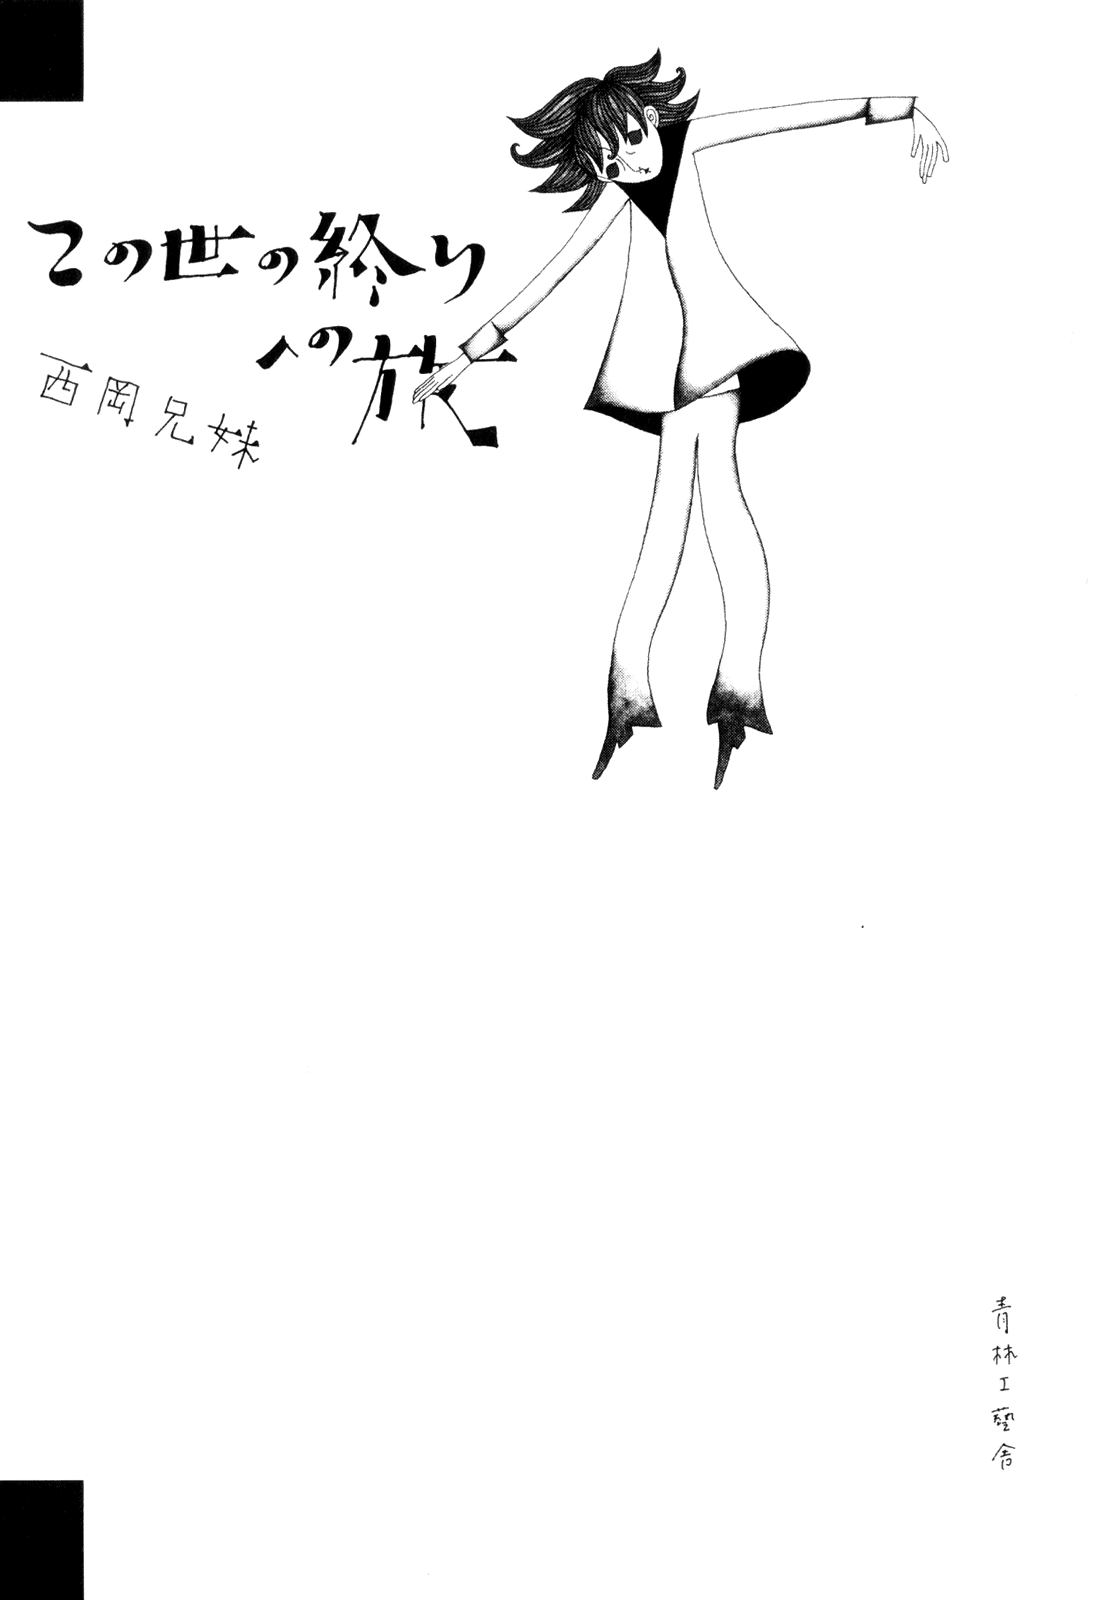 この世の終り
への旅
西岡兄妹
青林工藝舎